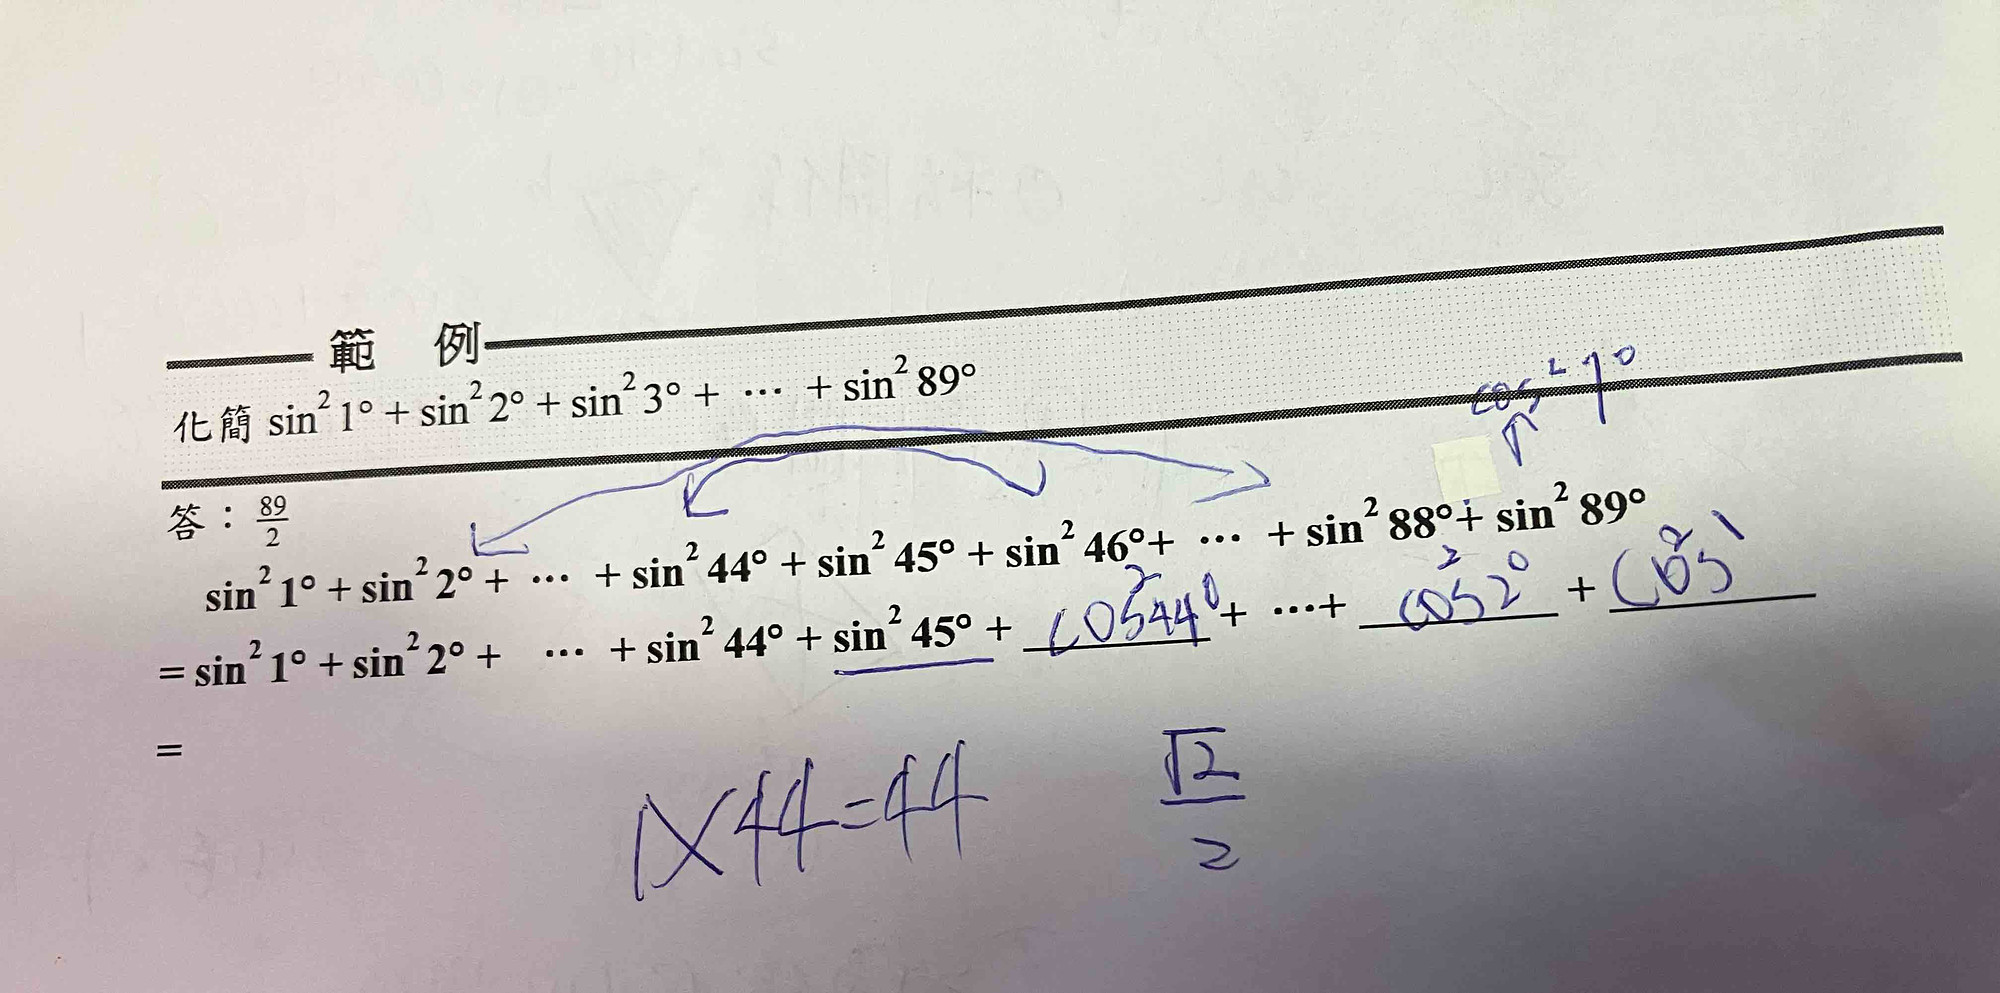 範 例
化簡 sin² 1° + sin² 2° + sin² 3° + ⋯ + sin² 89°
cos² 1°
答：89/2
sin² 1° + sin² 2° + ⋯ + sin² 44° + sin² 45° + sin² 46° + ⋯ + sin² 88° + sin² 89°
= sin² 1° + sin² 2° + ⋯ + sin² 44° + sin² 45° + cos² 44° + ⋯ + cos² 2° + cos² 1
=
1×44=44 √2/2